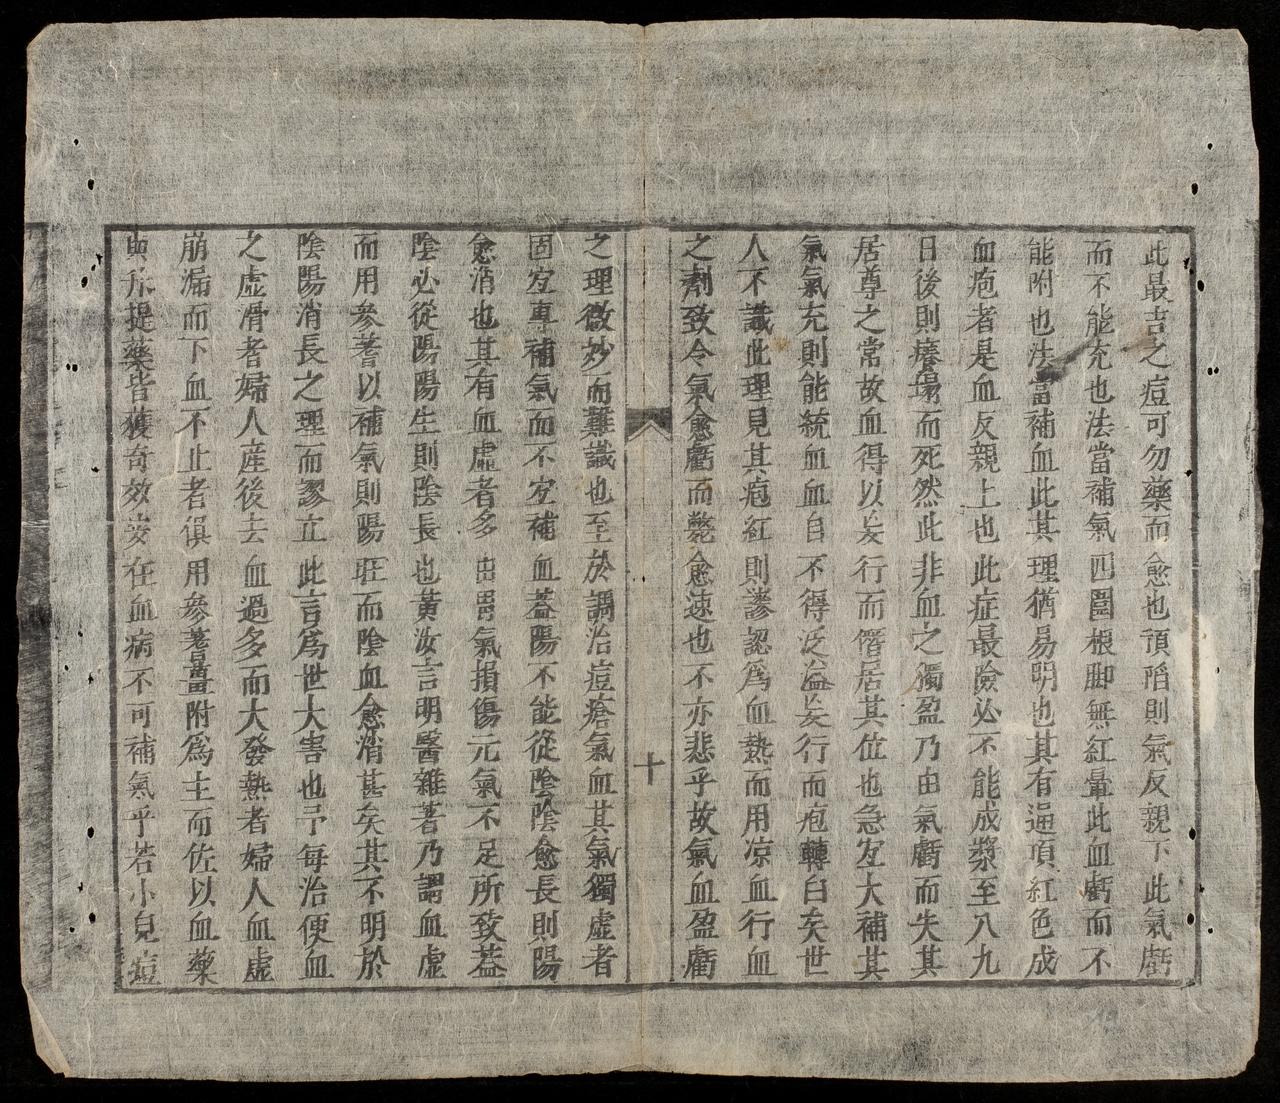 此最吉之痘可勿藥而愈也頂陷則氣反親下此氣虧
而不能充也法當補氣四圍根脚無紅暈此血虧而不
能附也法當補血此其理猶易明也其有逼項紅色成
血疱者是血反親上也此症最險必不能成漿至八九
日後則癢塌而死然此非血之獨盈乃由氣虧而失其
居尊之常故血得以妄行而僭居其位也急宐大補其
氣氣充則能統血血自不得泛溢妄行而疱轉白矣世
人不識此理見其疱紅則謬認爲血熱而用凉血行血
之劑致令氣愈虧而斃愈速也不亦悲乎故氣血盈虧
十
之理微妙而難識也至於調治痘瘡氣血其氣獨虛者
固宐專補氣而不宐補血葢陽不能從陰陰愈長則陽
愈消也其有血虛者多由胃氣損傷元氣不足所致葢
陰必從陽陽生則陰長也黄汝言明醫雜著乃謂血虛
而用參蓍以補氣則陽旺而陰血愈消甚矣其不明於
陰陽消長之理而謬立此言爲世大害也予每治便血
之虛滑者婦人産後去血過多而大發熱者婦人血虛
崩漏而下血不止者俱用參蓍薑附爲主而佐以血藥
與升提藥皆獲奇效安在血病不可補氣乎若小兒痘